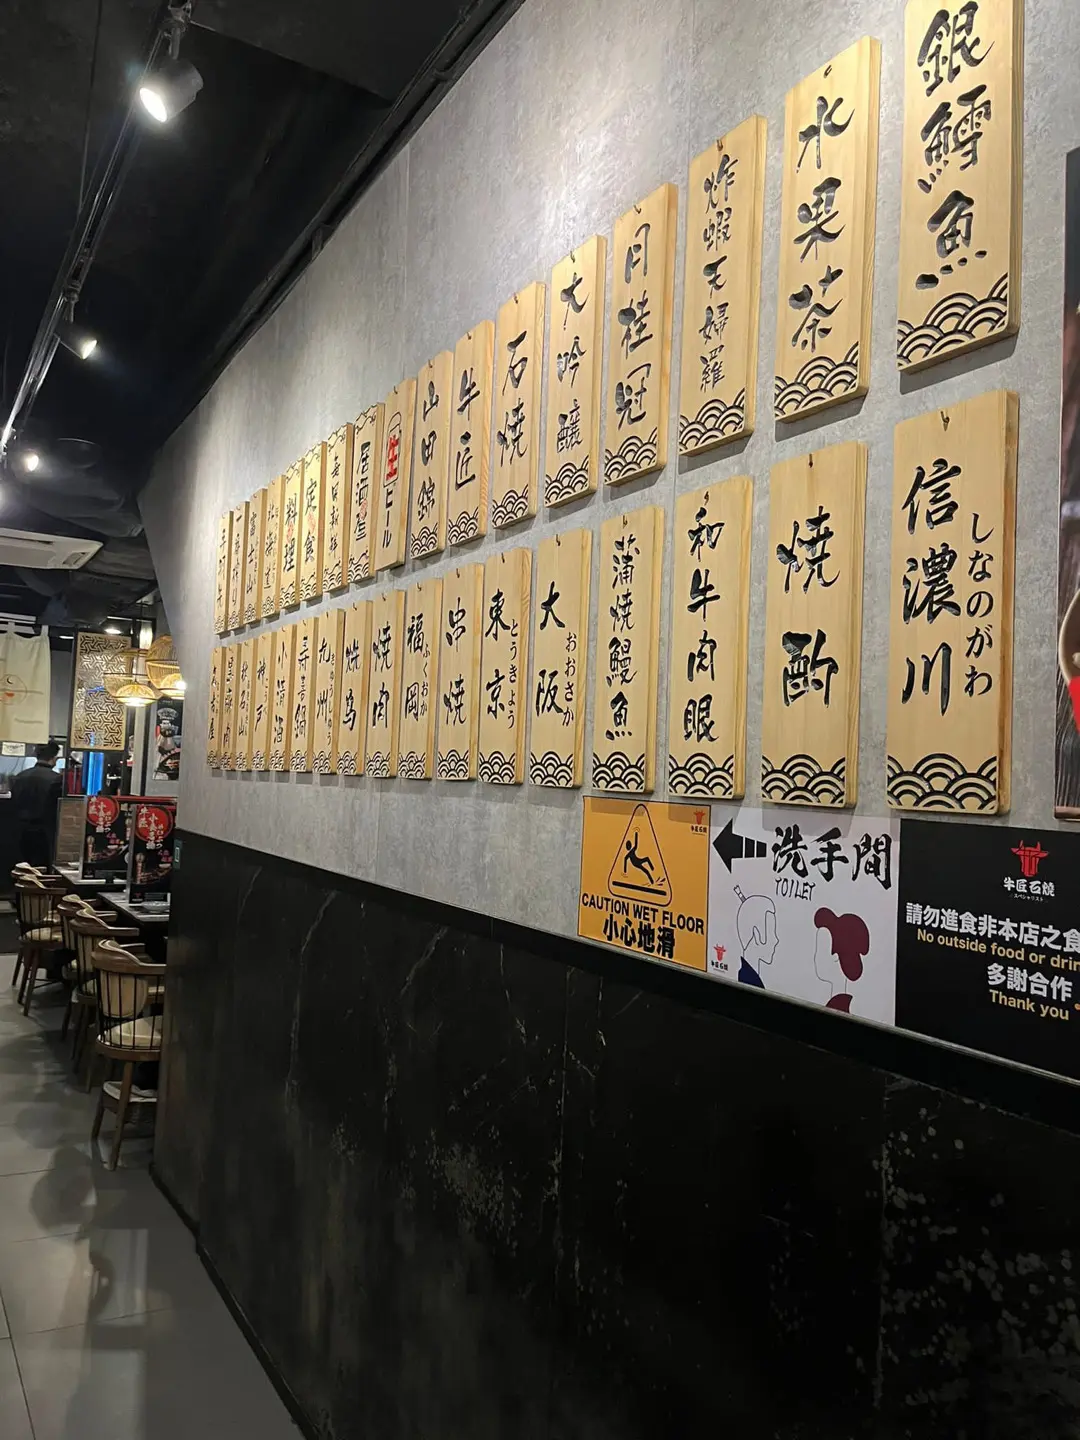 銀鱈魚
水果茶
炸蝦天婦羅
月桂冠
大吟釀
石燒
牛匠
山田錦
生ビール
居酒屋
定食
料理
北海道
富士山
信濃川
しなのがわ
燒酌
和牛肉眼
蒲燒鰻魚
大阪
おおさか
東京
とうきょう
串燒
福岡
ふくおか
燒肉
燒鳥
九州
きゅうしゅう
壽喜鍋
小清酒
神戶
CAUTION WET FLOOR
小心地滑
洗手間
TOILET
牛匠石燒
スペシャリスト
請勿進食非本店之食
No outside food or drin
多謝合作
Thank you